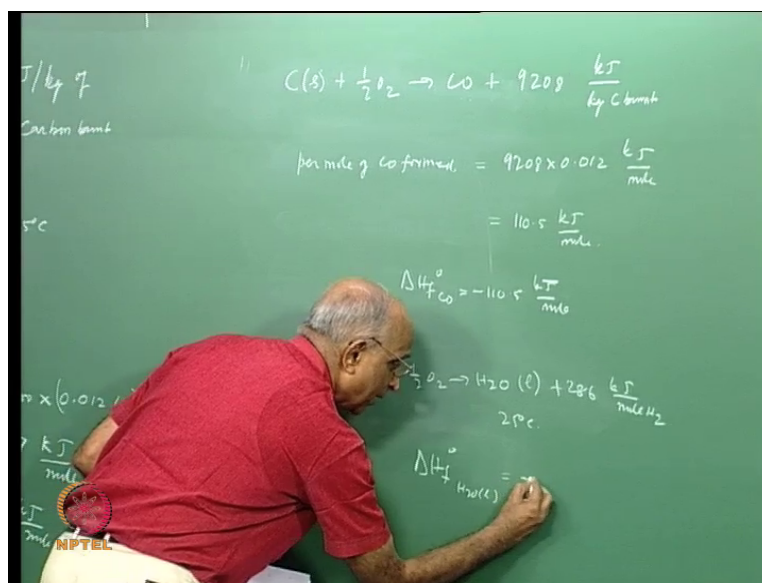 J/kg of
Carbon burnt
5°C
C(s) + 1/2 O2 → CO + 9208 kJ/kg C burnt
per mole of CO formed = 9208 × 0.012 kJ/mole
= 110.5 kJ/mole.
ΔHf° CO = -110.5 kJ/mole
1/2 O2 → H2O (l) + 286 kJ/mole H2
25°C.
ΔHf° H2O(l) = -
× (0.012
kJ/mole
kJ/mole
NPTEL